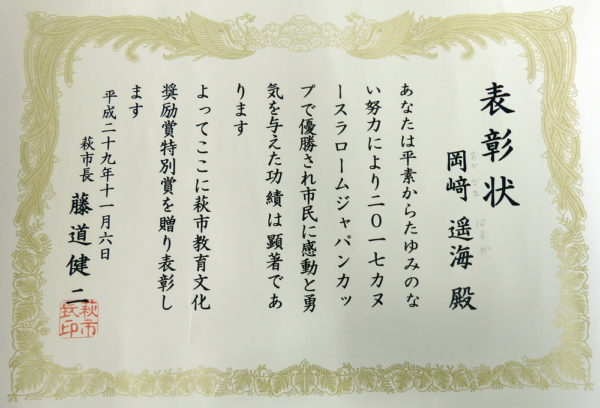 表彰状
岡﨑 遥海 殿
おかざき はるか
あなたは平素からたゆみのな
い努力により二〇一七カヌ
ースラロームジャパンカッ
プで優勝され市民に感動と勇
気を与えた功績は顕著であ
ります
よってここに萩市教育文化
奨励賞特別賞を贈り表彰し
ます
平成二十九年十一月六日
萩市長 藤道健二
萩市長印